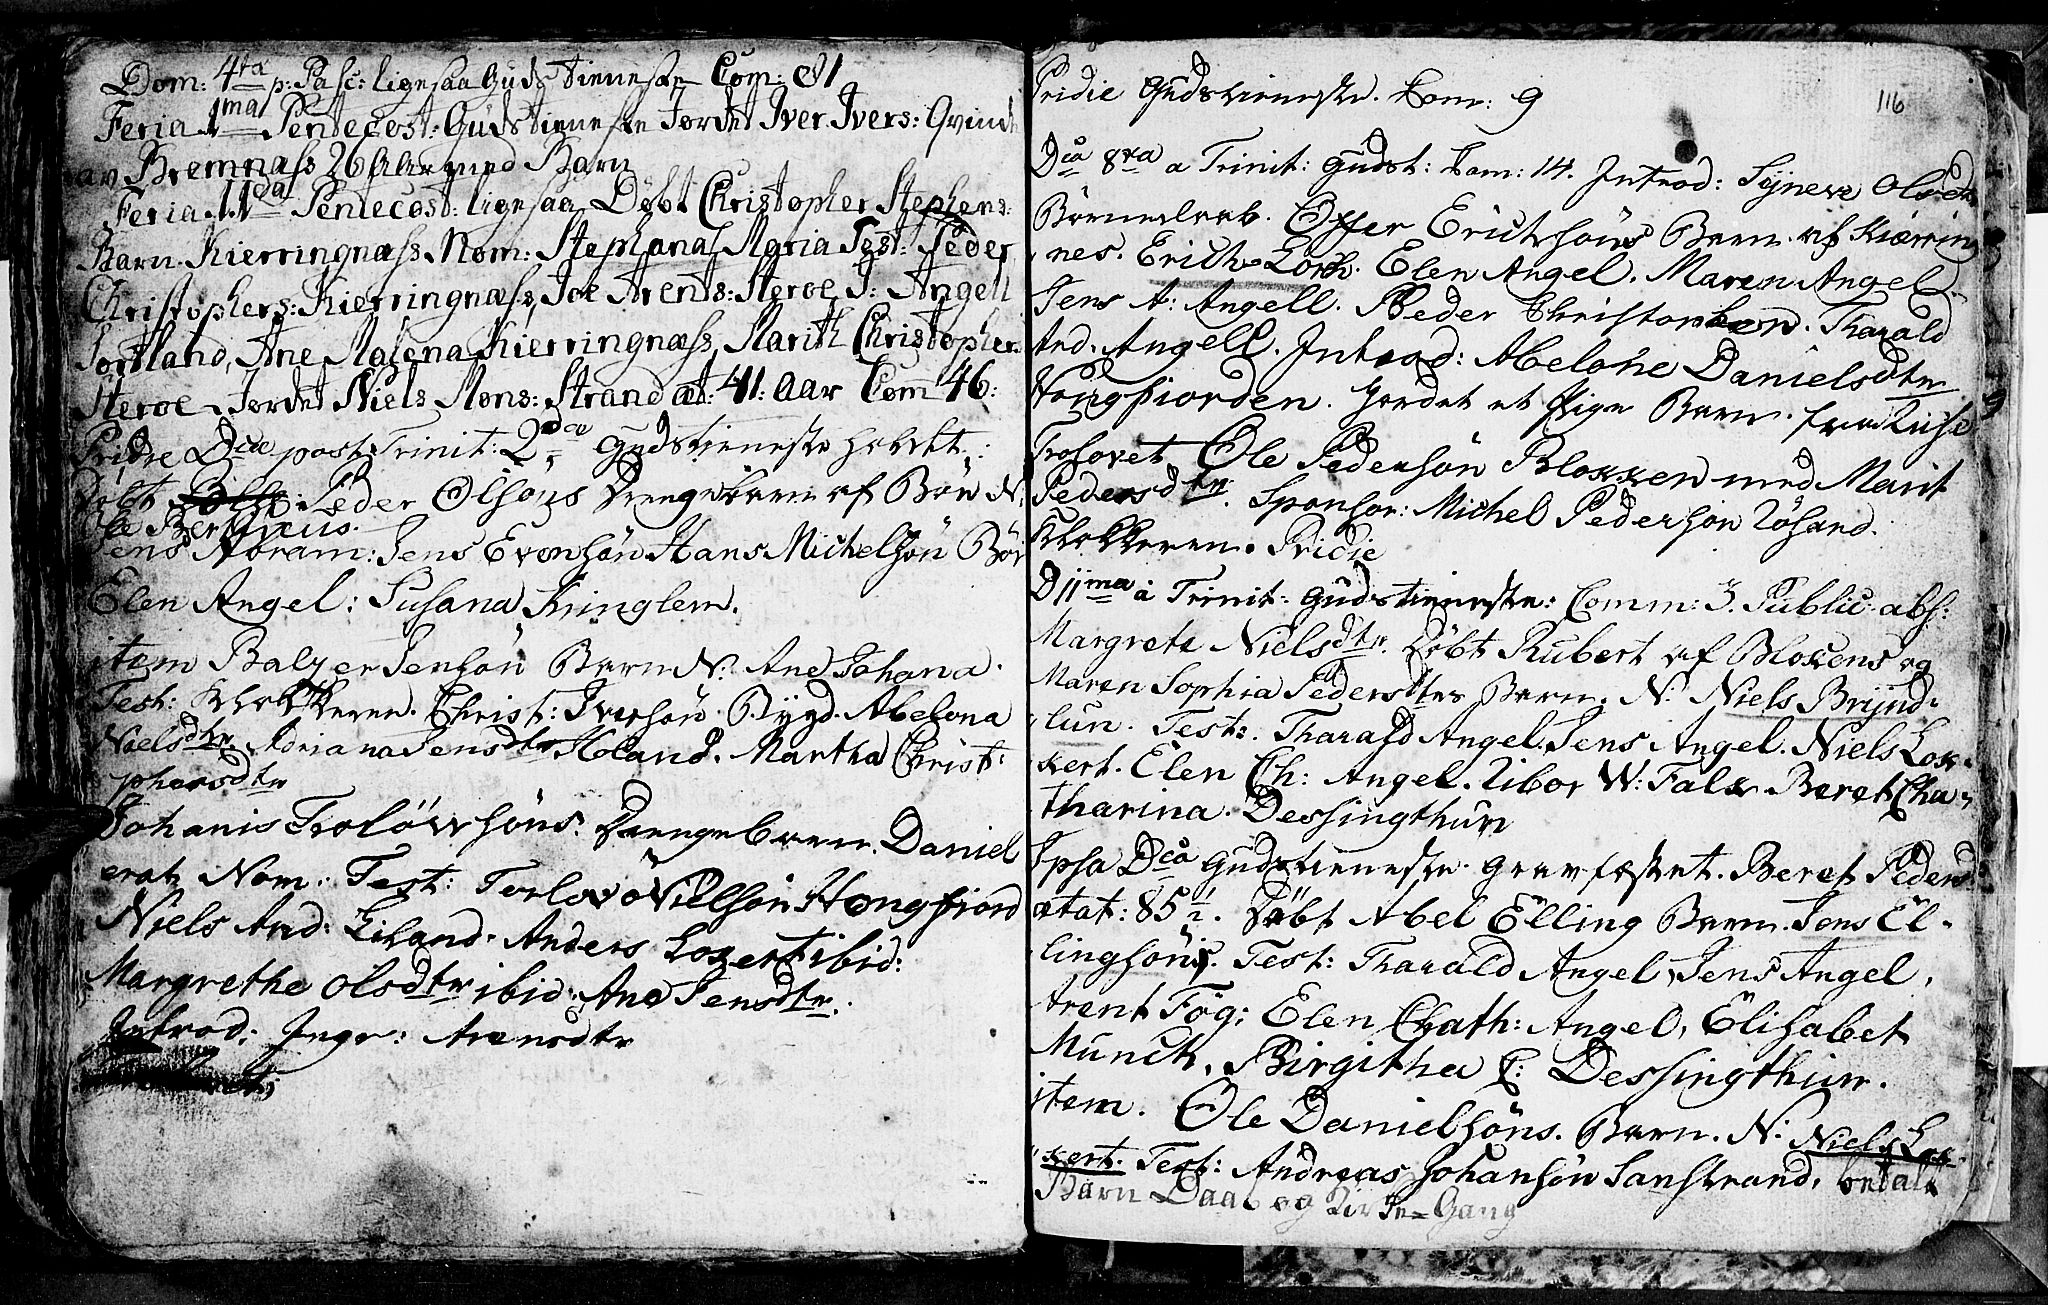 Dom: 4ta p: Pasc: ligesaa Guds Tieneste Com: 81
Feria 1ma Pentecost: Gudstieneste Jordet Iver Ivers: Qvinde
av Bremnæss 26 Aar med Barn
Feria 11da Pentecost: ligesaa Døbt Christopher Stephens:
Barn Kierringnæss Nom: Stephana Maria Test: Peder
Christophers: Kierringnæss, Joe Arents: Steroe J: Angell
Sortland, Ane Malena Kierringnæss, Marith Christopher:
Steroe. Jordet Niels Mons: Strand æt: 41: aar Com 46:
Pridie Dca post Trinit: 2da Gudstieneste holdet:
Døbt Peder Olsøns Drengebarn af Böe N.
Ole Bertheus.
Jens Abram: Jens Evensön Hans Michelsön Böe
Elen Angel: Susana Kringlem.
item Balzer Jensön Barn N: Ane Johana.
Test: Klokkeren. Christ: Iversön. Bygd. Abelona
Nielsdtr Adriana Jensdtr Holand. Martha Christ:
phersdtr
Johanis Trolöwsöns. Drengebarn. Daniel
erat Nom: Test: Torlov Nielsön Hongfiord
Niels And: Liland. Anders Lokert ibid:
Margrethe Olsdtr ibid: Ane Jensdtr.
Introd: Ingr: Arensdtr
Pridie Gudstieneste. Com: 9
116
Dca 8va a Trinit: Gudst: Com: 14. Introd: Syneve Olsdtr
Børnedaab. Offer Erichsöns Barn af Kierring
nes. Erich Lorch. Elen Angel. Maren Angel.
Jens A: Angell. Peder Christophersen. Tharald
And. Angell. Introd: Abelone Danielsdtr
Hongfiorden. Jordet et Pige Barn. fra
Trolovet Ole Pedersön Blokken med Marit
Pedersdtr. Sponsor: Michel Pederson Rösand.
Klokkeren. Pridie
D 11ma a Trinit: Gudstieneste: Comm: 3. Public: abs:
Margrete Nielsdtr. Döbt Rubert af Blokens og
Maren Sophia Pedersdtrs Barn. N: Niels Brynd-
lun. Test: Tharald Angel. Jens Angel. Niels Lok-
kert. Elen Ch: Angel. Zibor W: Falk Beret Cha-
tharina. Dessingthun
Ipsa Dca Gudstieneste. Gravfæstet. Beret Peders
ætat: 85 1/2. Döbt Abel Elling Barn. Jens El-
lingsöns. Test: Tharald Angel, Jens Angel,
Arent Fög: Elen Chath: Angel, Elisabet
Munch, Birgitha C: Dessingthun.
item. Ole Danielsöns. Barn. N: Niels Lok-
kert. Test: Andreas Johansön Sanstrand, betalt
Barn Daab og Kirke-Gang